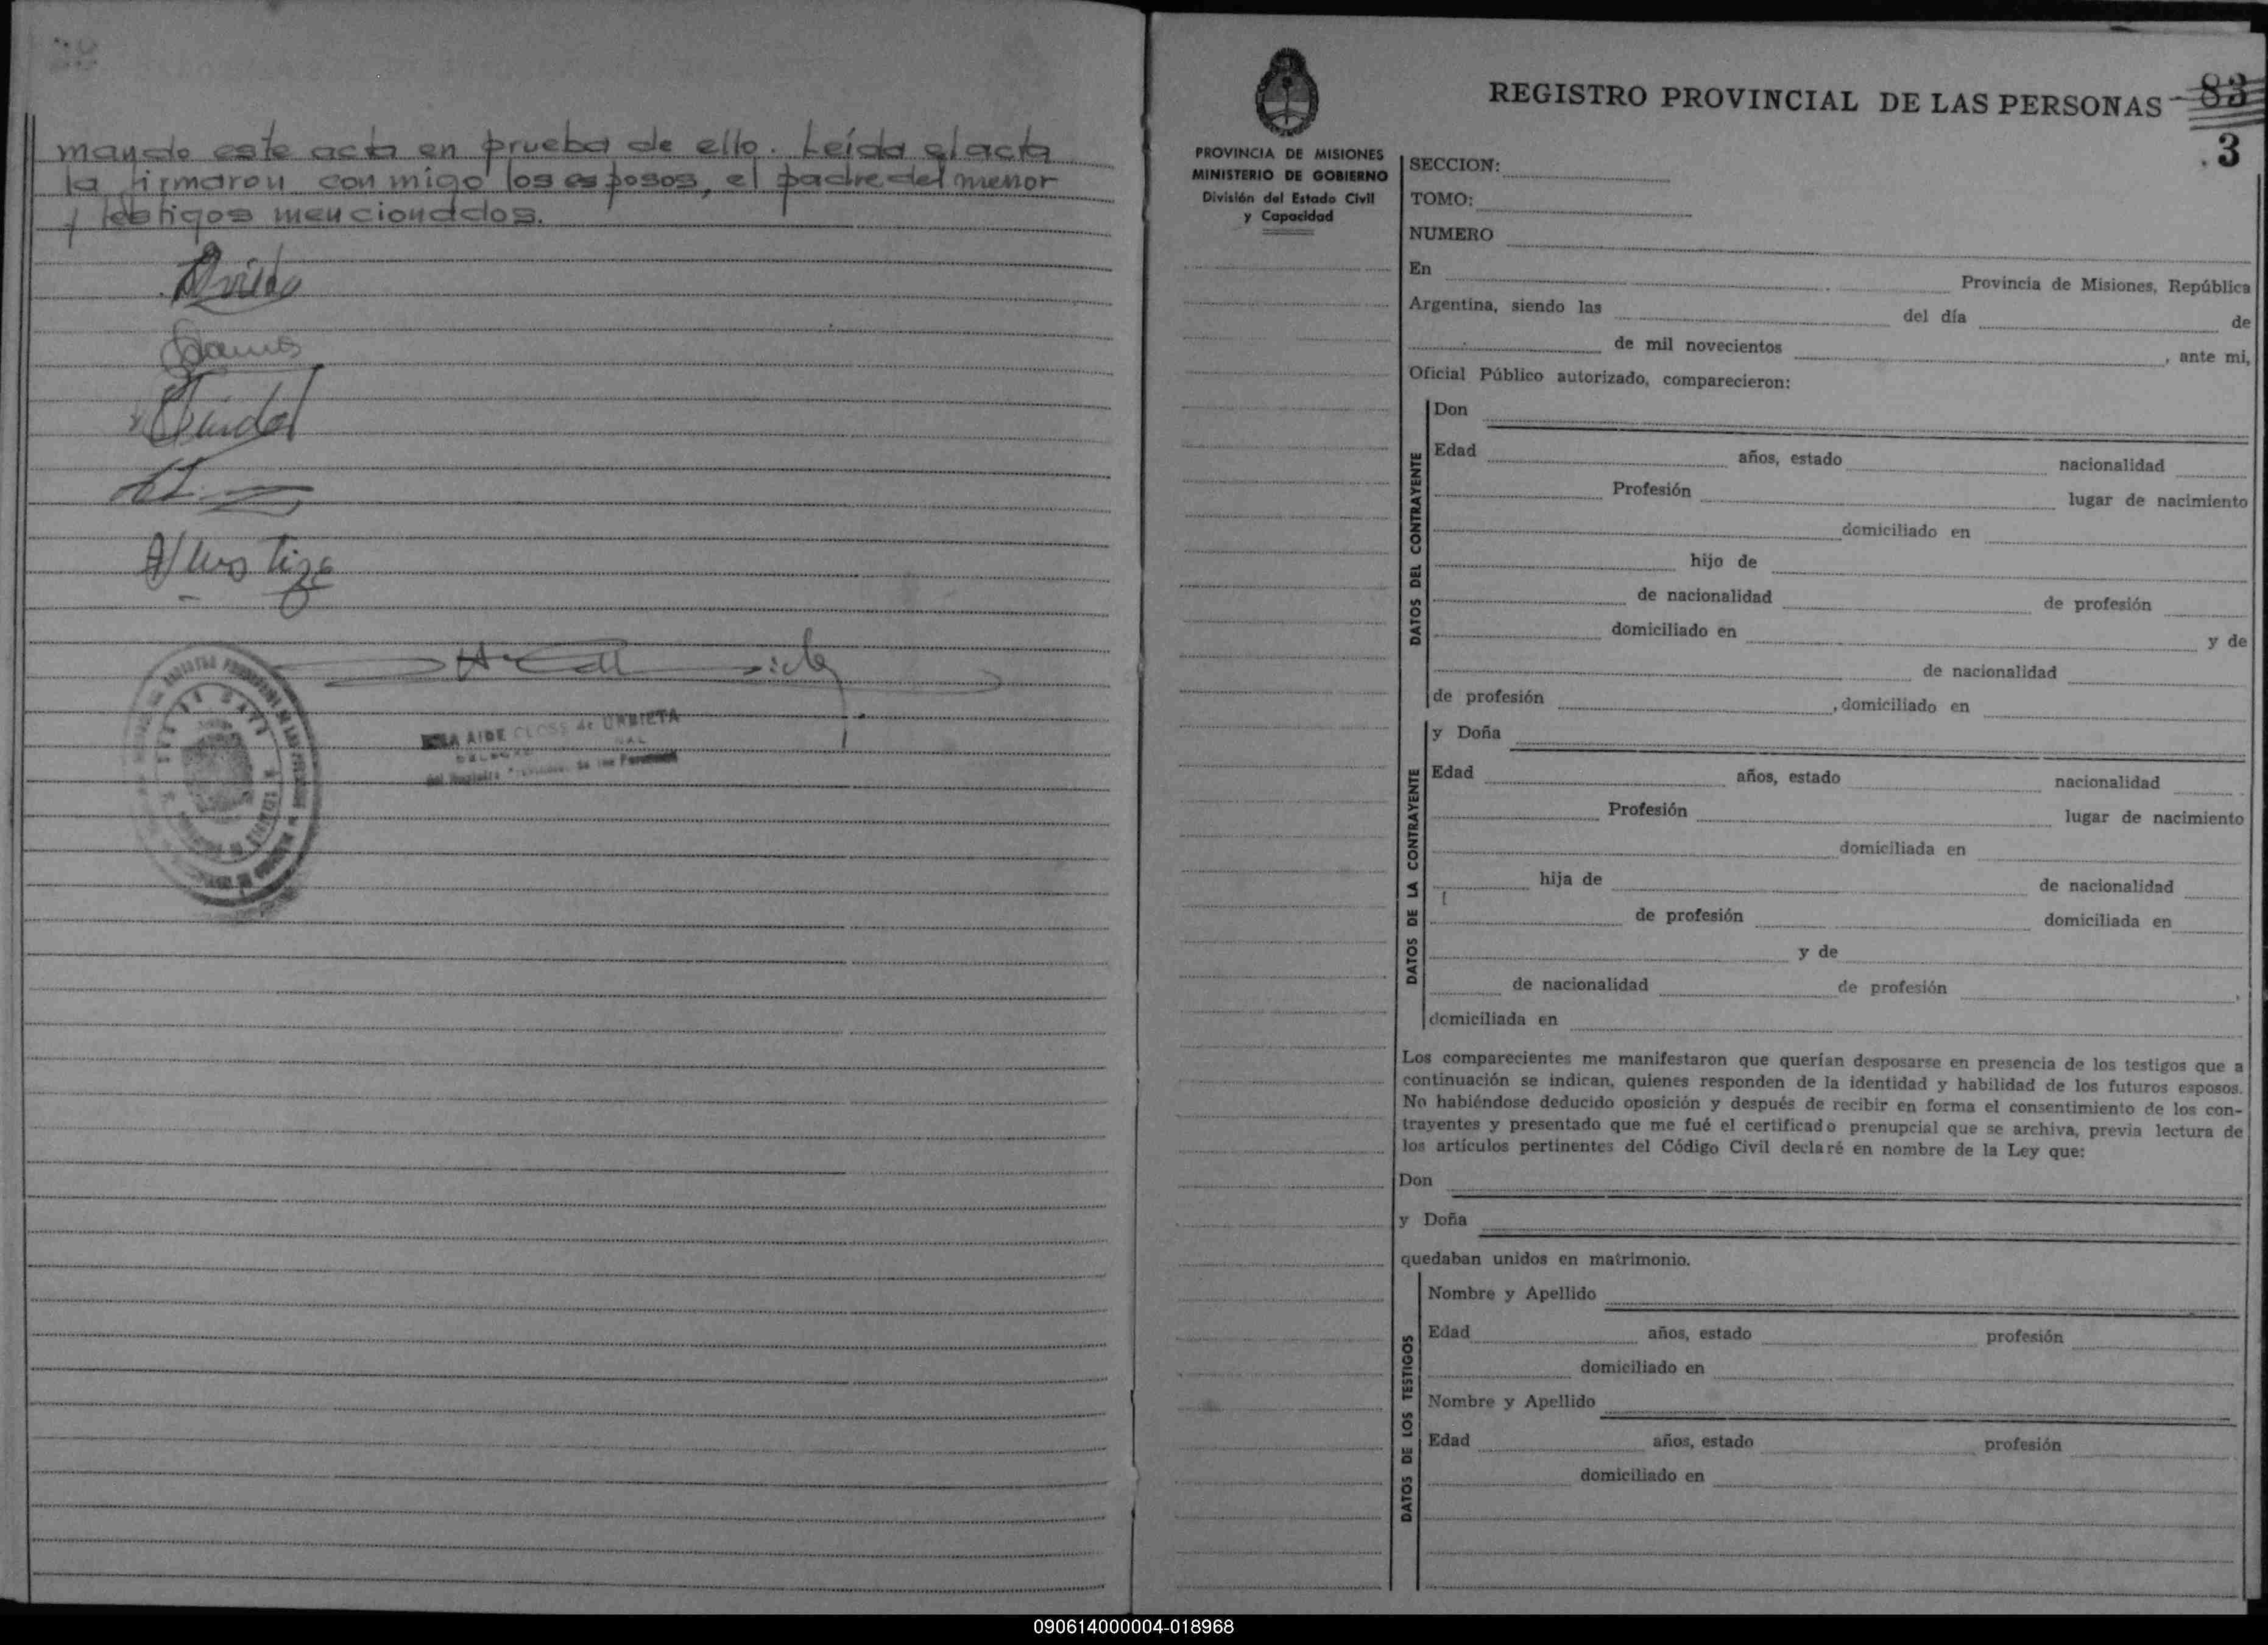 mando este acta en prueba de ello. Leída el acta
la firmaron conmigo los esposos, el padre del menor
y testigos mencionados.
AIDE CLOSS de URBIETA
PROVINCIA DE MISIONES
MINISTERIO DE GOBIERNO
División del Estado Civil
y Capacidad
REGISTRO PROVINCIAL DE LAS PERSONAS - 83
3
SECCION:
TOMO:
NUMERO
En Provincia de Misiones, República
Argentina, siendo las del día de
de mil novecientos , ante mi,
Oficial Público autorizado, comparecieron:
DATOS DEL CONTRAYENTE
Don
Edad años, estado nacionalidad
Profesión lugar de nacimiento
domiciliado en
hijo de
de nacionalidad de profesión
domiciliado en y de
de nacionalidad
de profesión , domiciliado en
DATOS DE LA CONTRAYENTE
y Doña
Edad años, estado nacionalidad
Profesión lugar de nacimiento
domiciliada en
hija de de nacionalidad
de profesión domiciliada en
y de
de nacionalidad de profesión ,
domiciliada en
Los comparecientes me manifestaron que querían desposarse en presencia de los testigos que a
continuación se indican, quienes responden de la identidad y habilidad de los futuros esposos.
No habiéndose deducido oposición y después de recibir en forma el consentimiento de los con-
trayentes y presentado que me fué el certificado prenupcial que se archiva, previa lectura de
los artículos pertinentes del Código Civil declaré en nombre de la Ley que:
Don
y Doña
quedaban unidos en matrimonio.
DATOS DE LOS TESTIGOS
Nombre y Apellido
Edad años, estado profesión
domiciliado en
Nombre y Apellido
Edad años, estado profesión
domiciliado en
090614000004-018968